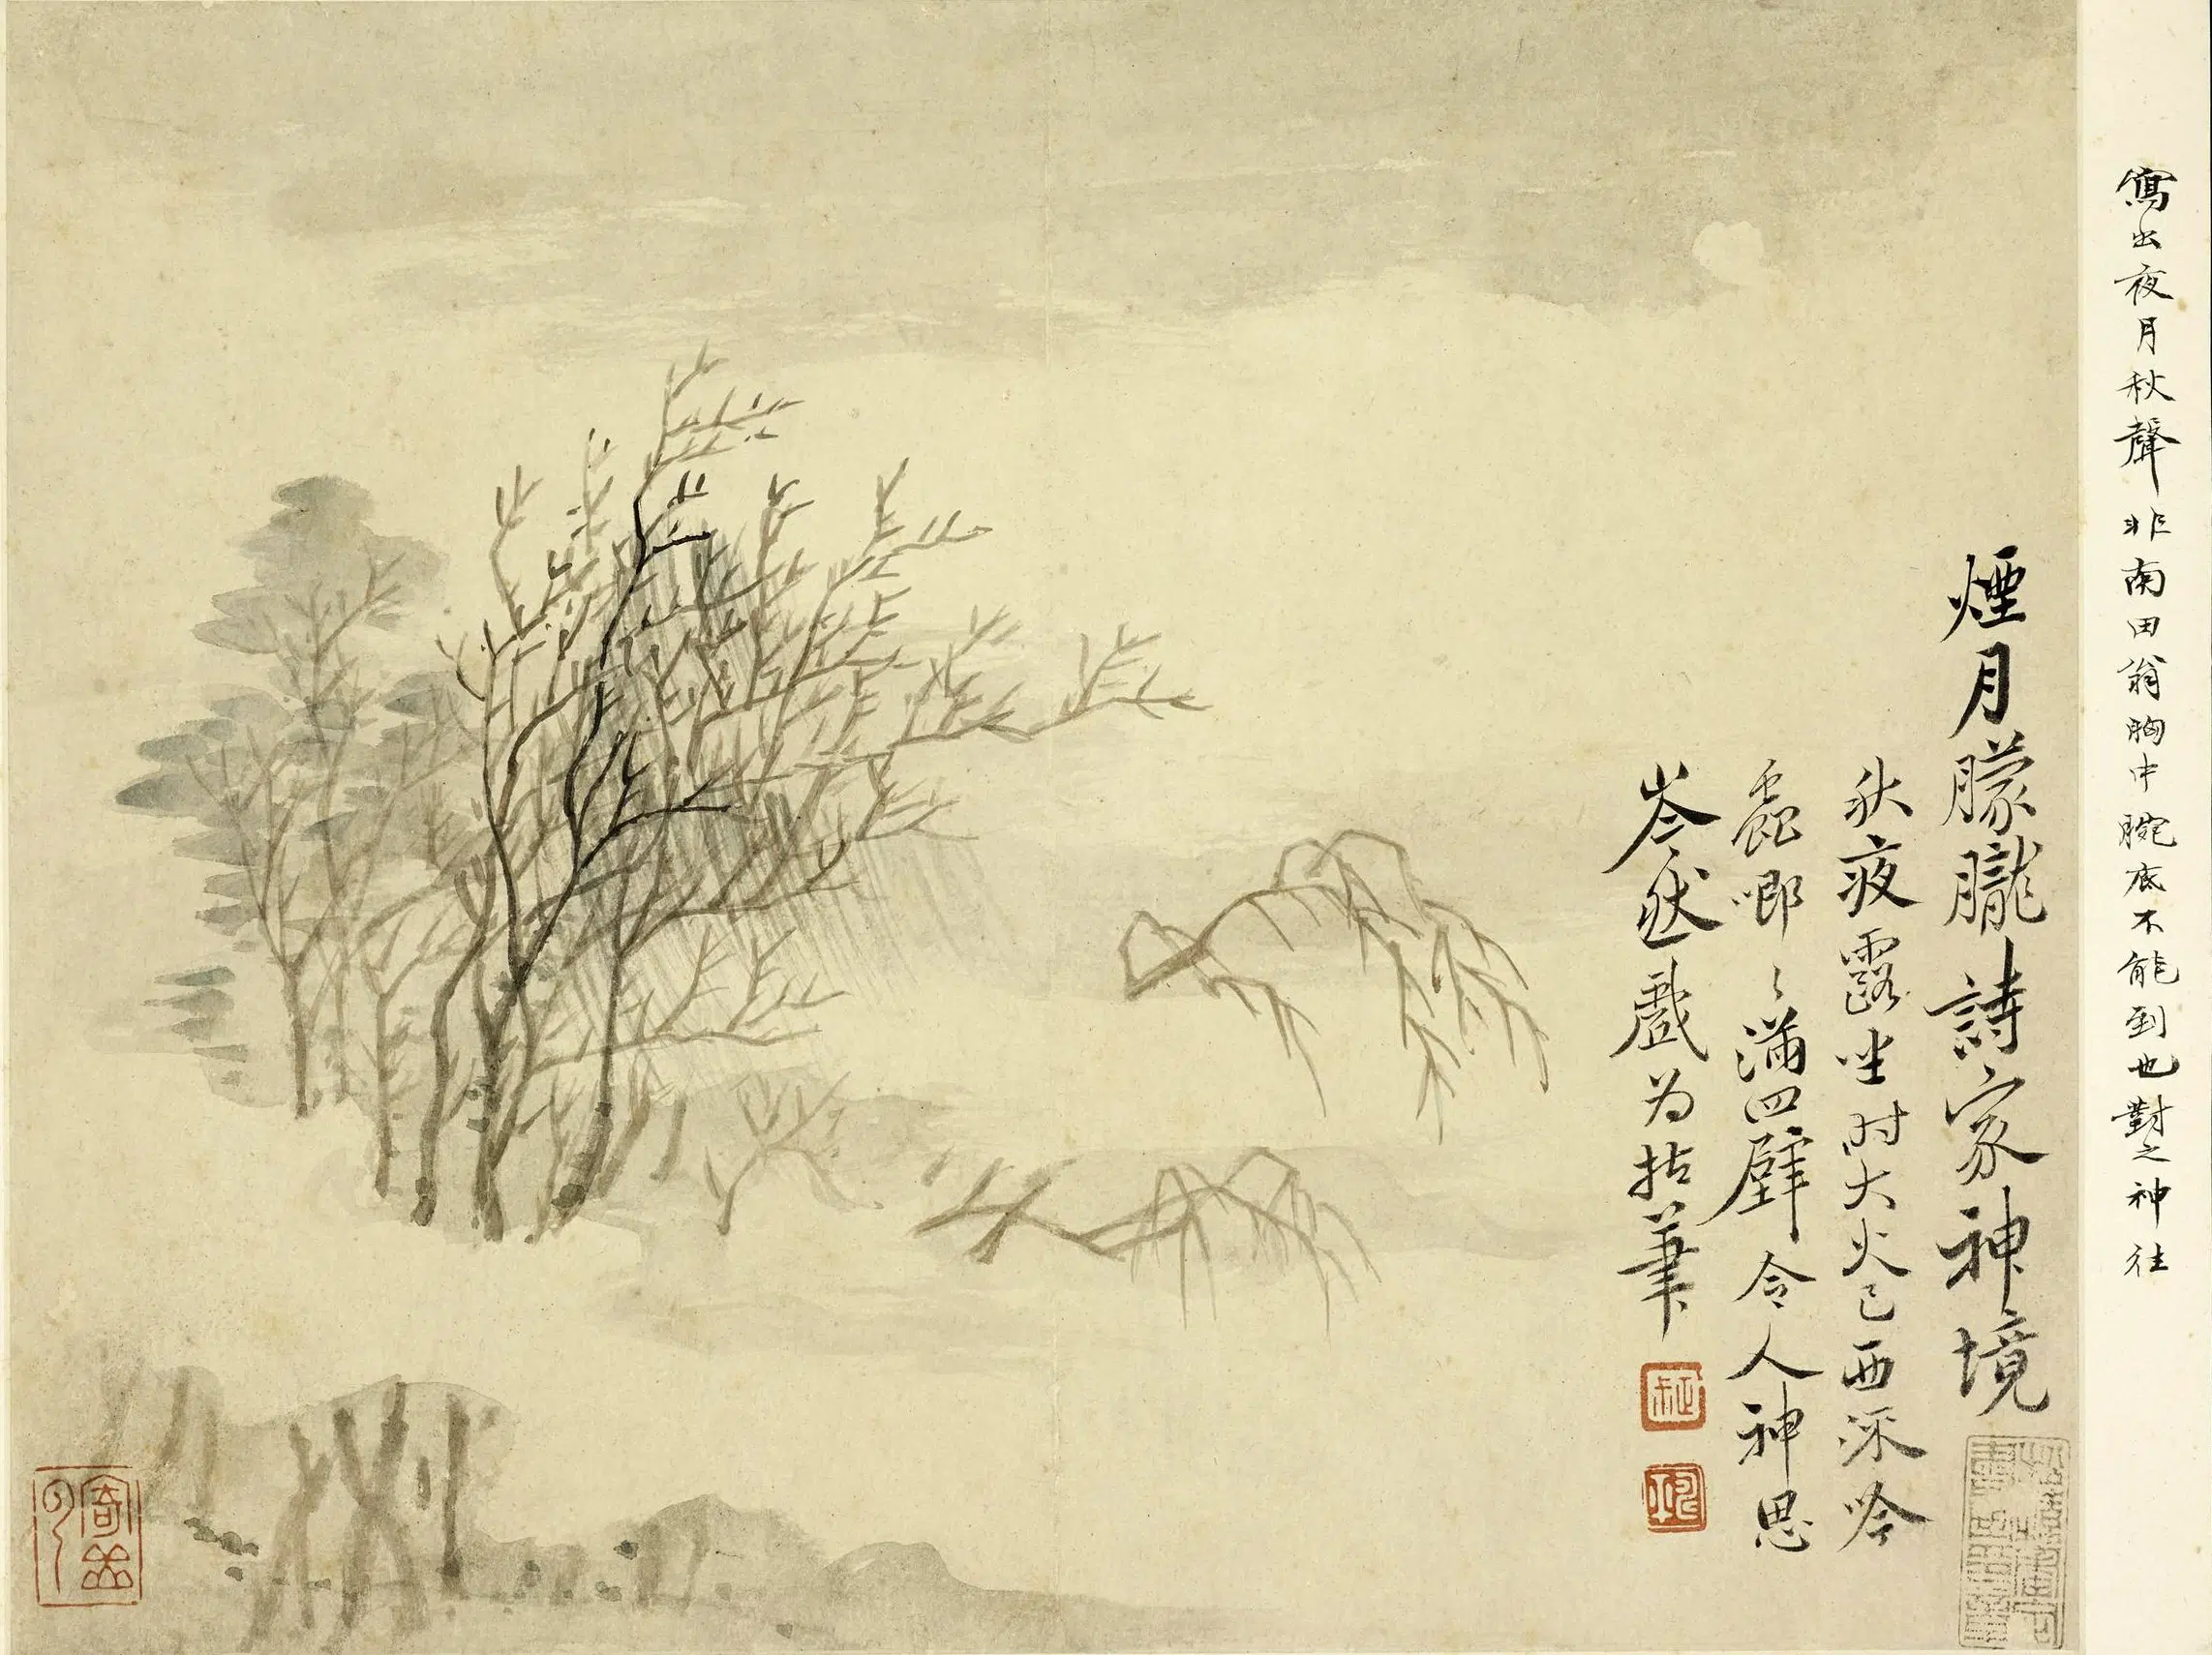 寫出夜月秋聲非南田翁胸中腕底不能到也對之神往
煙月朦朧詩家神境
秋夜露坐时大火已西流吟
蟲唧〻滿四壁令人神思
岑然戲为拈筆